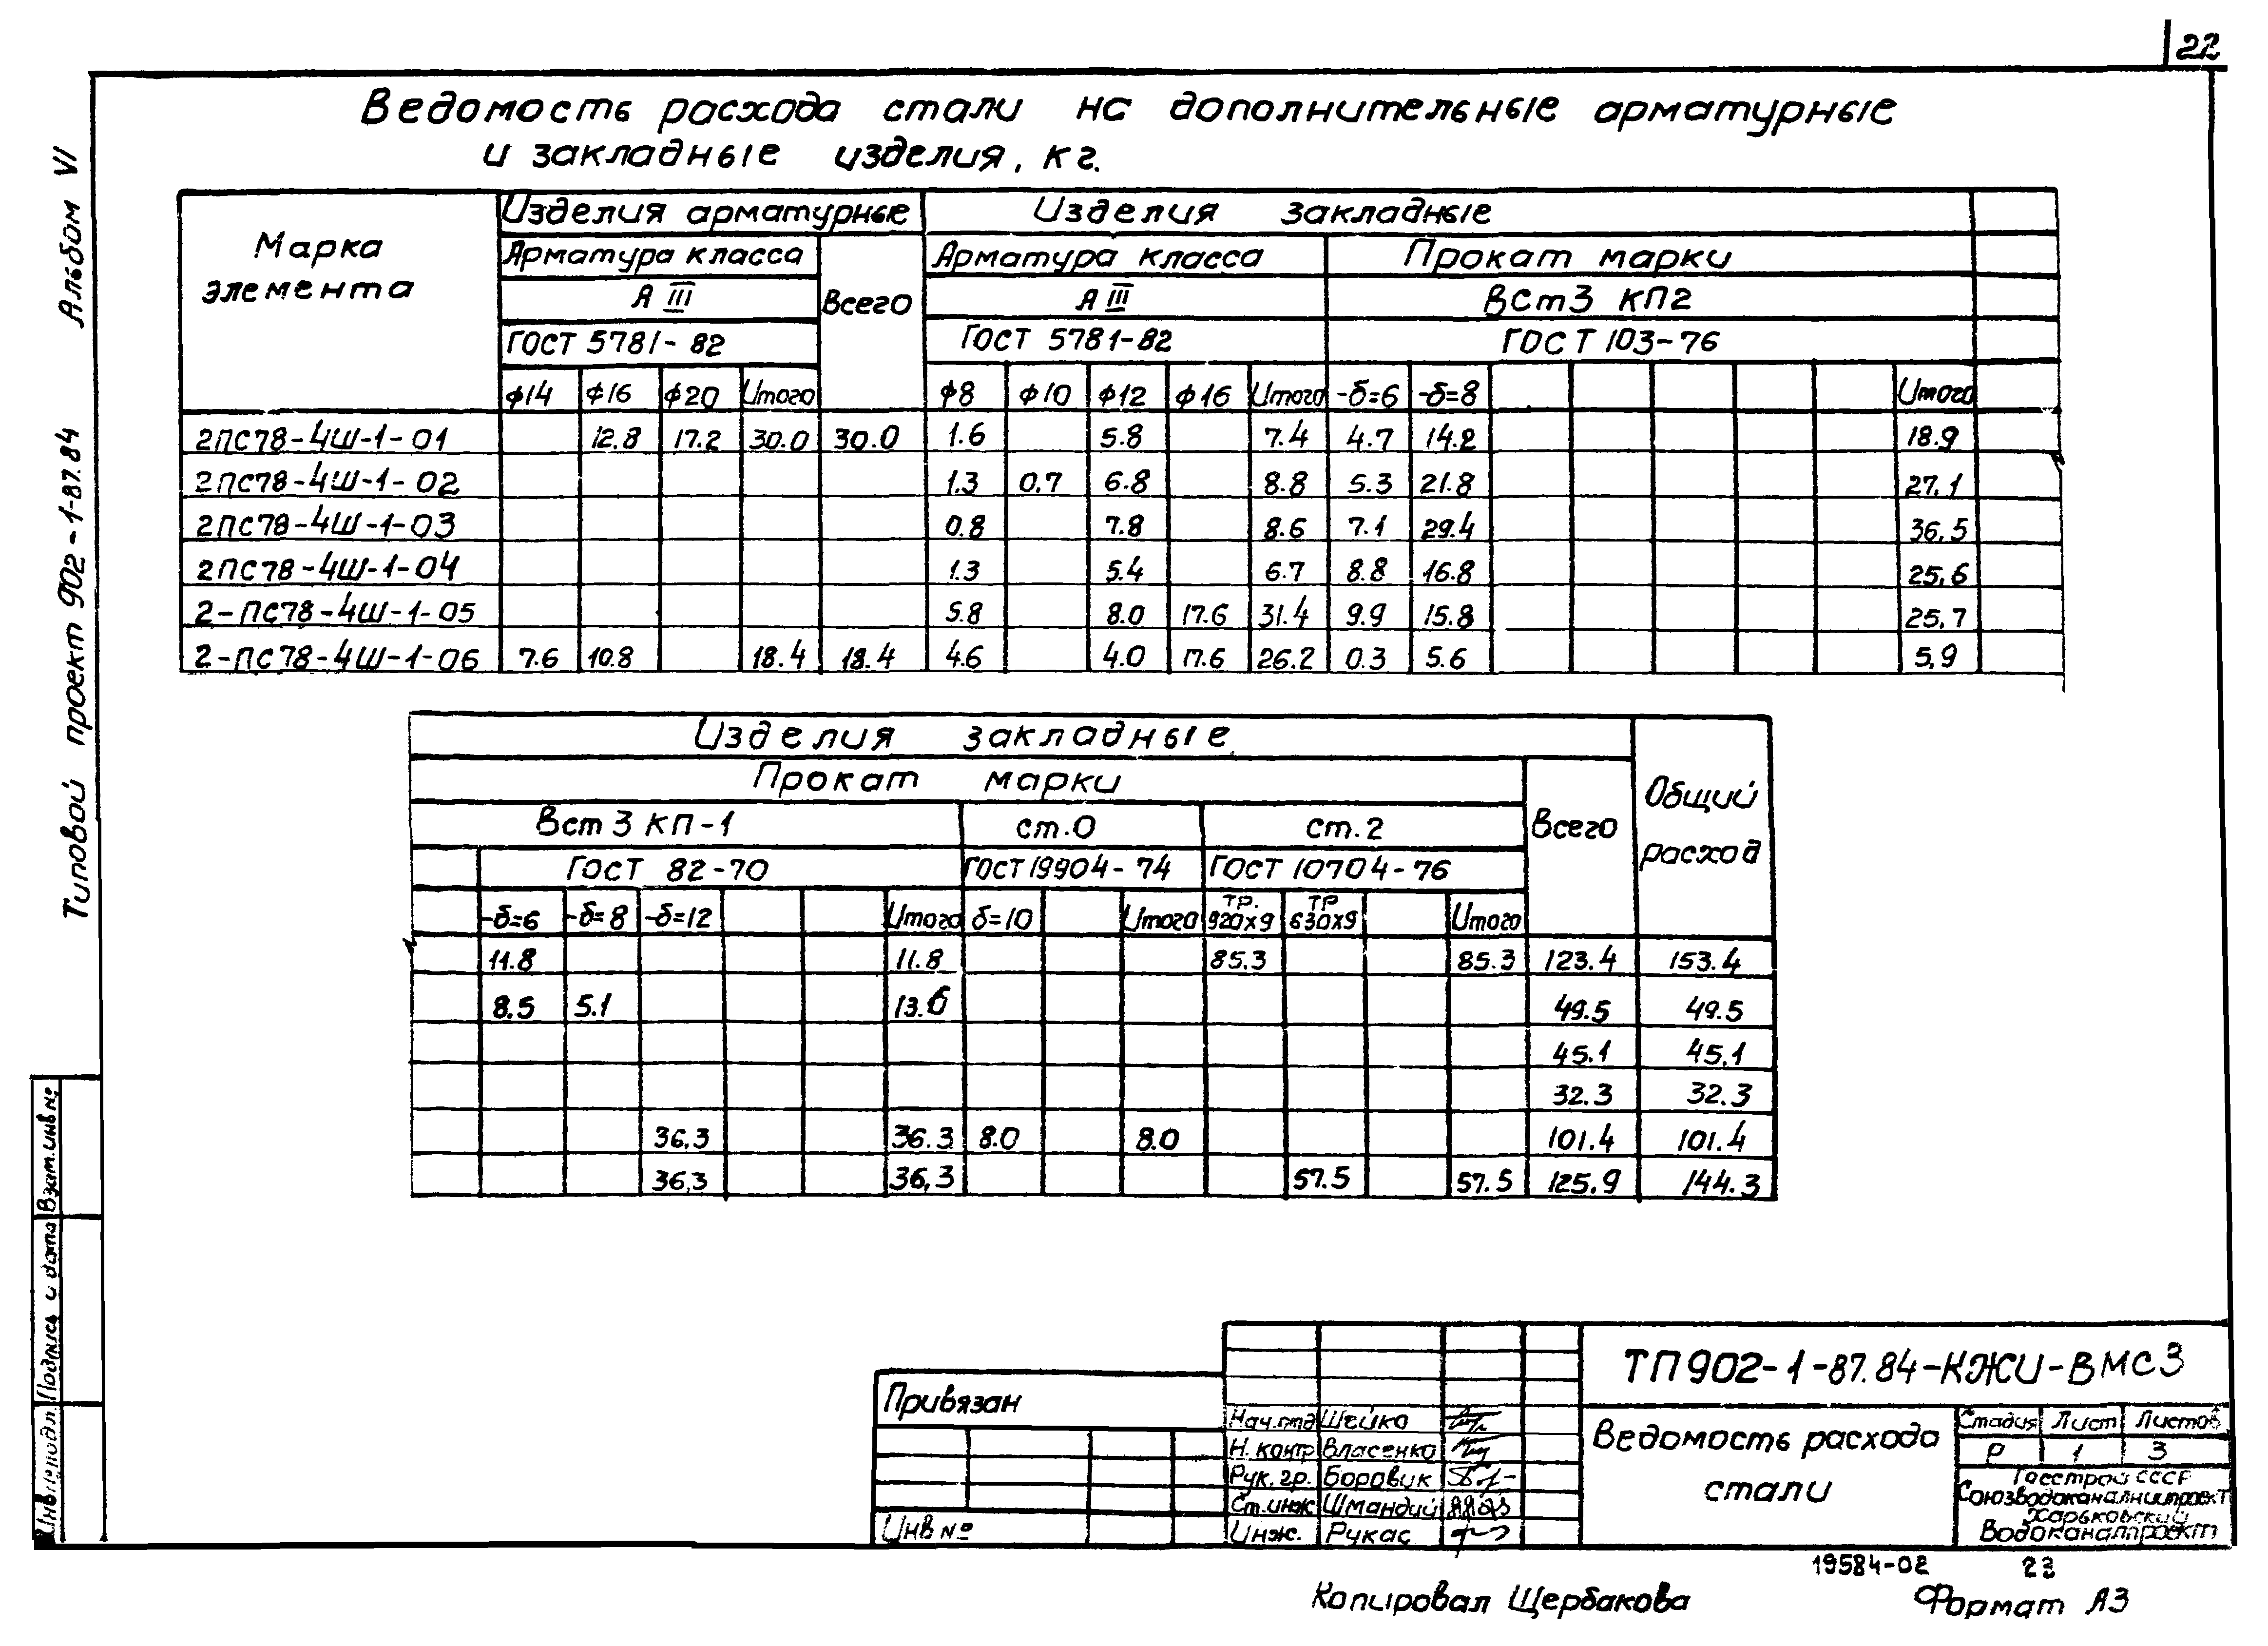 22
Ведомость расхода стали на дополнительные арматурные
и закладные изделия, кг.
Марка элемента
Изделия арматурные
Изделия закладные
Арматура класса
Всего
Арматура класса
Прокат марки
А III
А III
ВСт3 КП2
ГОСТ 5781-82
ГОСТ 5781-82
ГОСТ 103-76
ф14 ф16 ф20 Итого ф8 ф10 ф12 ф16 Итого -δ=6 -δ=8 Итого
2ПС78-4Ш-1-01 12.8 17.2 30.0 30.0 1.6 5.8 7.4 4.7 14.2 18.9
2ПС78-4Ш-1-02 1.3 0.7 6.8 8.8 5.3 21.8 27.1
2ПС78-4Ш-1-03 0.8 7.8 8.6 7.1 29.4 36,5
2ПС78-4Ш-1-04 1.3 5.4 6.7 8.8 16.8 25,6
2-ПС78-4Ш-1-05 5.8 8.0 17.6 31.4 9.9 15.8 25,7
2-ПС78-4Ш-1-06 7.6 10.8 18.4 18.4 4.6 4.0 17.6 26.2 0.3 5.6 5,9
Изделия закладные
Общий расход
Прокат марки
Всего
Вст3 КП-1 ст.0 ст.2
ГОСТ 82-70 ГОСТ 19904-74 ГОСТ 10704-76
-δ=6 -δ=8 -δ=12 Итого δ=10 Итого Тр. 920х9 Тр 630х9 Итого
11.8 11.8 85.3 85.3 123.4 153.4
8.5 5.1 13.6 49.5 49.5
45.1 45.1
32.3 32.3
36.3 36.3 8.0 8.0 101.4 101.4
36,3 36,3 57.5 57.5 125.9 144.3
Альбом VI
Типовой проект 902-1-87.84
Взам.инв№
Подпись и дата
Инв№подл.
Привязан
Инв№
Нач.отд Шейко
Н. контр Власенко
Рук. гр. Боровик
Ст.инж Шмандий
Инж. Рукас
ТП902-1-87.84-КЖИ-ВМС3
Ведомость расхода
стали
Стадия Лист Листов
Р 1 3
Госстрой СССР
Союзводоканалниипроект
Харьковский
Водоканалпроект
19584-02 23
Копировал Щербакова Формат А3